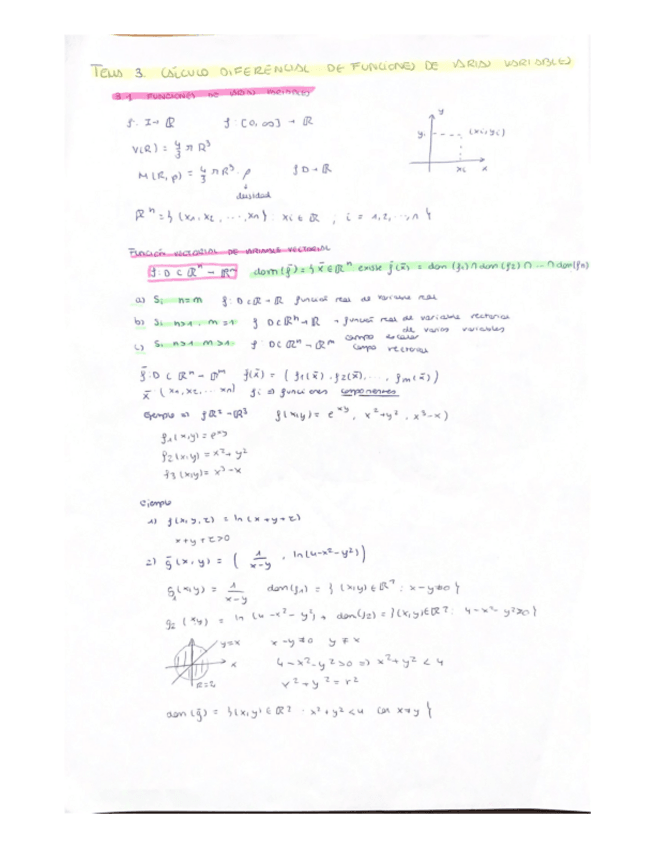 TEMA 3. CÁLCULO DIFERENCIAL DE FUNCIONES DE VARIAS VARIABLES
3.1 FUNCIONES DE VARIAS VARIABLES
f: I → ℝ f: [0, ∞] → ℝ
V(R) = 4/3 π R³
M(R, ρ) = 4/3 π R³ · ρ f D → ℝ
densidad
y
yi (xi, yi)
xi x
ℝⁿ = { (x1, x2, ..., xn) : xi ∈ ℝ , i = 1, 2, ..., n }
FUNCIÓN VECTORIAL DE VARIABLE VECTORIAL
f: D ⊂ ℝⁿ → ℝᵐ dom (f̄) = { x̄ ∈ ℝⁿ existe f̄(x̄) = dom (f1) ∩ dom (f2) ∩ ... ∩ dom (fn)
a) Si n = m f: D ⊂ ℝ → ℝ función real de variable real
b) Si n>1, m=1 f D ⊂ ℝⁿ → ℝ → función real de variable vectorial
de varias variables
campo escalar
c) Si n>1 m>1 f D ⊂ ℝⁿ → ℝᵐ campo vectorial
f̄: D ⊂ ℝⁿ → ℝᵐ f̄(x̄) = ( f1(x̄), f2(x̄), ..., fm(x̄) )
x̄ (x1, x2, ... xn) fi ⇒ funciones componentes
Ejemplo f ℝ² → ℝ³ f(x,y) = e^xy, x² + y², x³ - x)
f1(x,y) = e^xy
f2(x,y) = x² + y²
f3(x,y) = x³ - x
Ejemplo
1) f(x, y, z) = ln (x + y + z)
x + y + z > 0
2) ḡ(x, y) = ( 1/(x-y) , ln(4-x²-y²) )
g1(x,y) = 1/(x-y) dom(g1) = { (x,y) ∈ ℝ² : x - y ≠ 0 }
g2(x,y) = ln (4 - x² - y²) → dom(g2) = {(x,y) ∈ ℝ² : 4 - x² - y² > 0 }
y=x x - y ≠ 0 y ≠ x
x 4 - x² - y² > 0 ⇒ x² + y² < 4
R=2 x² + y² = r²
dom (ḡ) = { (x, y) ∈ ℝ² · x² + y² < 4 con x ≠ y }